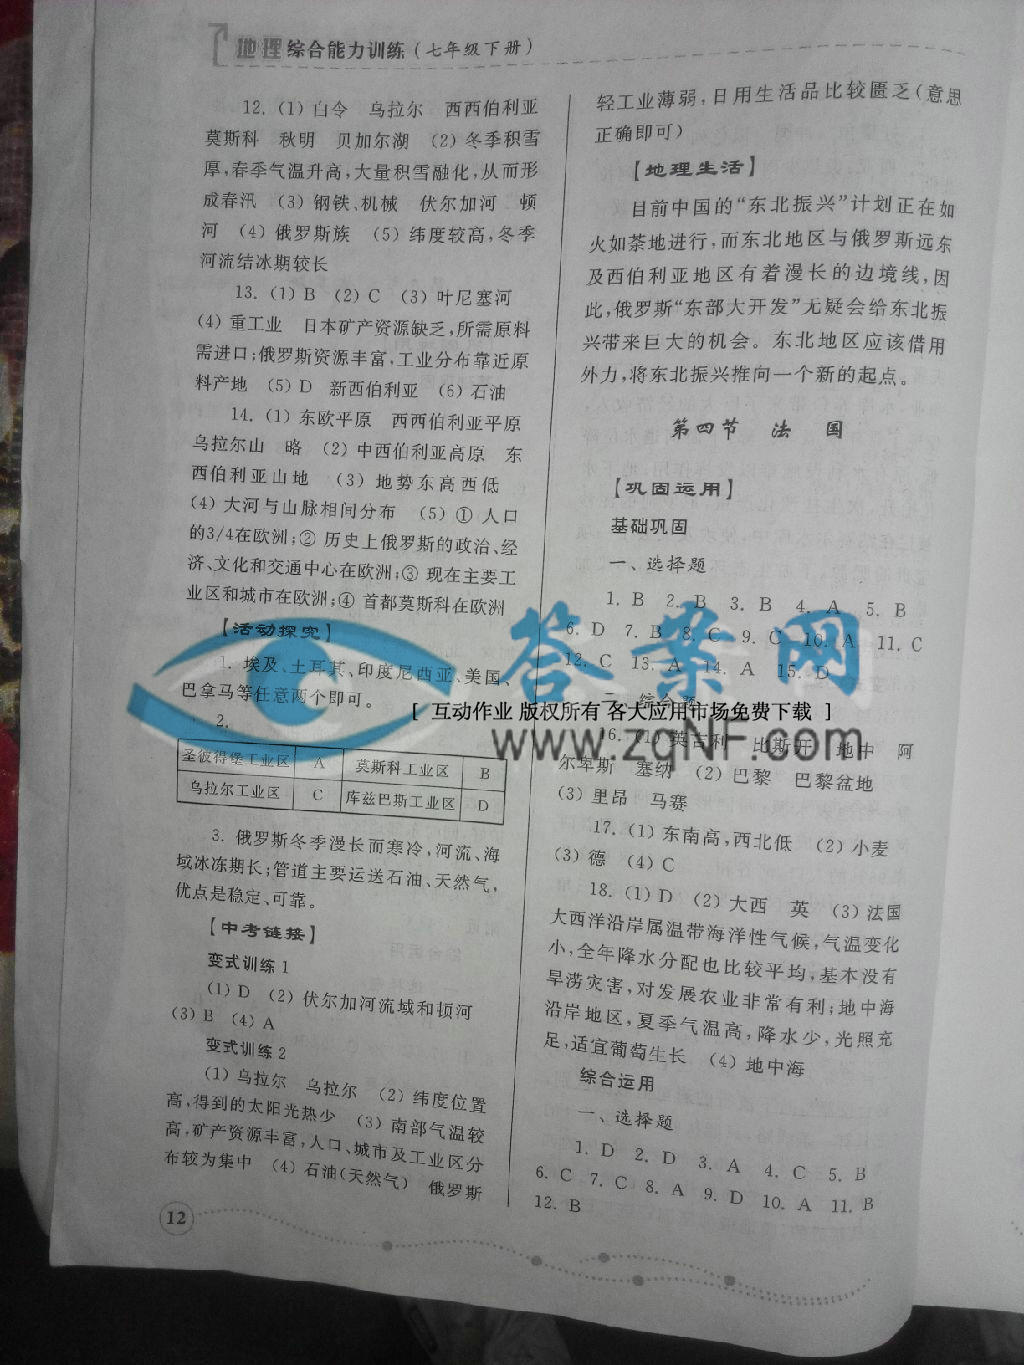 地理 综合能力训练(七年级下册)
12. (1) 白令 乌拉尔 西西伯利亚
莫斯科 秋明 贝加尔湖 (2) 冬季积雪
厚,春季气温升高,大量积雪融化,从而形
成春汛 (3) 钢铁、机械 伏尔加河 顿
河 (4) 俄罗斯族 (5) 纬度较高,冬季
河流结冰期较长
13. (1) B (2) C (3) 叶尼塞河
(4) 重工业 日本矿产资源缺乏,所需原料
需进口;俄罗斯资源丰富,工业分布靠近原
料产地 (5) D 新西伯利亚 (6) 石油
14. (1) 东欧平原 西西伯利亚平原
乌拉尔山 略 (2) 中西伯利亚高原 东
西伯利亚山地 (3) 地势东高西低
(4) 大河与山脉相间分布 (5) ① 人口
的3/4在欧洲;② 历史上俄罗斯的政治、经
济、文化和交通中心在欧洲;③ 现在主要工
业区和城市在欧洲;④ 首都莫斯科在欧洲
【活动探究】
1. 埃及、土耳其、印度尼西亚、美国、
巴拿马等任意两个即可。
2.
圣彼得堡工业区 A 莫斯科工业区 B
乌拉尔工业区 C 库兹巴斯工业区 D
3. 俄罗斯冬季漫长而寒冷,河流、海
域冰冻期长;管道主要运送石油、天然气,
优点是稳定、可靠。
【中考链接】
变式训练1
(1) D (2) 伏尔加河流域和顿河
(3) B (4) A
变式训练2
(1) 乌拉尔 乌拉尔 (2) 纬度位置
高,得到的太阳光热少 (3) 南部气温较
高,矿产资源丰富,人口、城市及工业区分
布较为集中 (4) 石油(天然气) 俄罗斯
12
轻工业薄弱,日用生活品比较匮乏(意思
正确即可)
【地理生活】
目前中国的“东北振兴”计划正在如
火如荼地进行,而东北地区与俄罗斯远东
及西伯利亚地区有着漫长的边境线,因
此,俄罗斯“东部大开发”无疑会给东北振
兴带来巨大的机会。东北地区应该借用
外力,将东北振兴推向一个新的起点。
第四节 法 国
【巩固运用】
基础巩固
一、选择题
1. B 2. B 3. B 4. A 5. B
6. D 7. B 8. C 9. C 10. A 11. C
12. C 13. A 14. A 15. D
二、综合题
16. (1) 英吉利 比斯开 地中 阿
尔卑斯 塞纳 (2) 巴黎 巴黎盆地
(3) 里昂 马赛
17. (1) 东南高,西北低 (2) 小麦
(3) 德 (4) C
18. (1) D (2) 大西 英 (3) 法国
大西洋沿岸属温带海洋性气候,气温变化
小,全年降水分配也比较平均,基本没有
旱涝灾害,对发展农业非常有利;地中海
沿岸地区,夏季气温高,降水少,光照充
足,适宜葡萄生长 (4) 地中海
综合运用
一、选择题
1. D 2. D 3. A 4. C 5. B
6. C 7. C 8. A 9. D 10. A 11. B
12. B
答案网
[ 互动作业 版权所有 各大应用市场免费下载 ]
www.zqNF.com